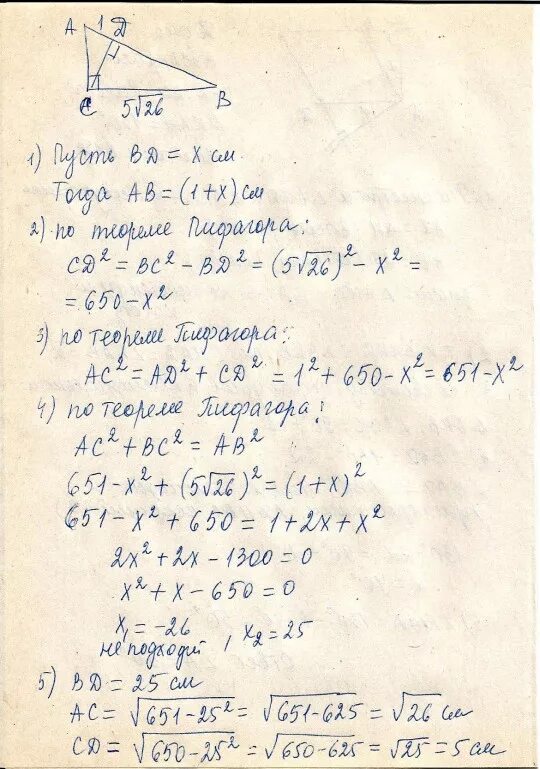 A 1 D
C 5√26 B
1) Пусть BD = x см.
Тогда AB = (1+x) см
2) по теореме Пифагора:
CD² = BC² - BD² = (5√26)² - x² =
= 650 - x²
3) по теореме Пифагора:
AC² = AD² + CD² = 1² + 650 - x² = 651 - x²
4) по теореме Пифагора:
AC² + BC² = AB²
651 - x² + (5√26)² = (1+x)²
651 - x² + 650 = 1 + 2x + x²
2x² + 2x - 1300 = 0
x² + x - 650 = 0
x₁ = -26, x₂ = 25
не подходит
5) BD = 25 см
AC = √651-25² = √651-625 = √26 см
CD = √650-25² = √650-625 = √25 = 5 см